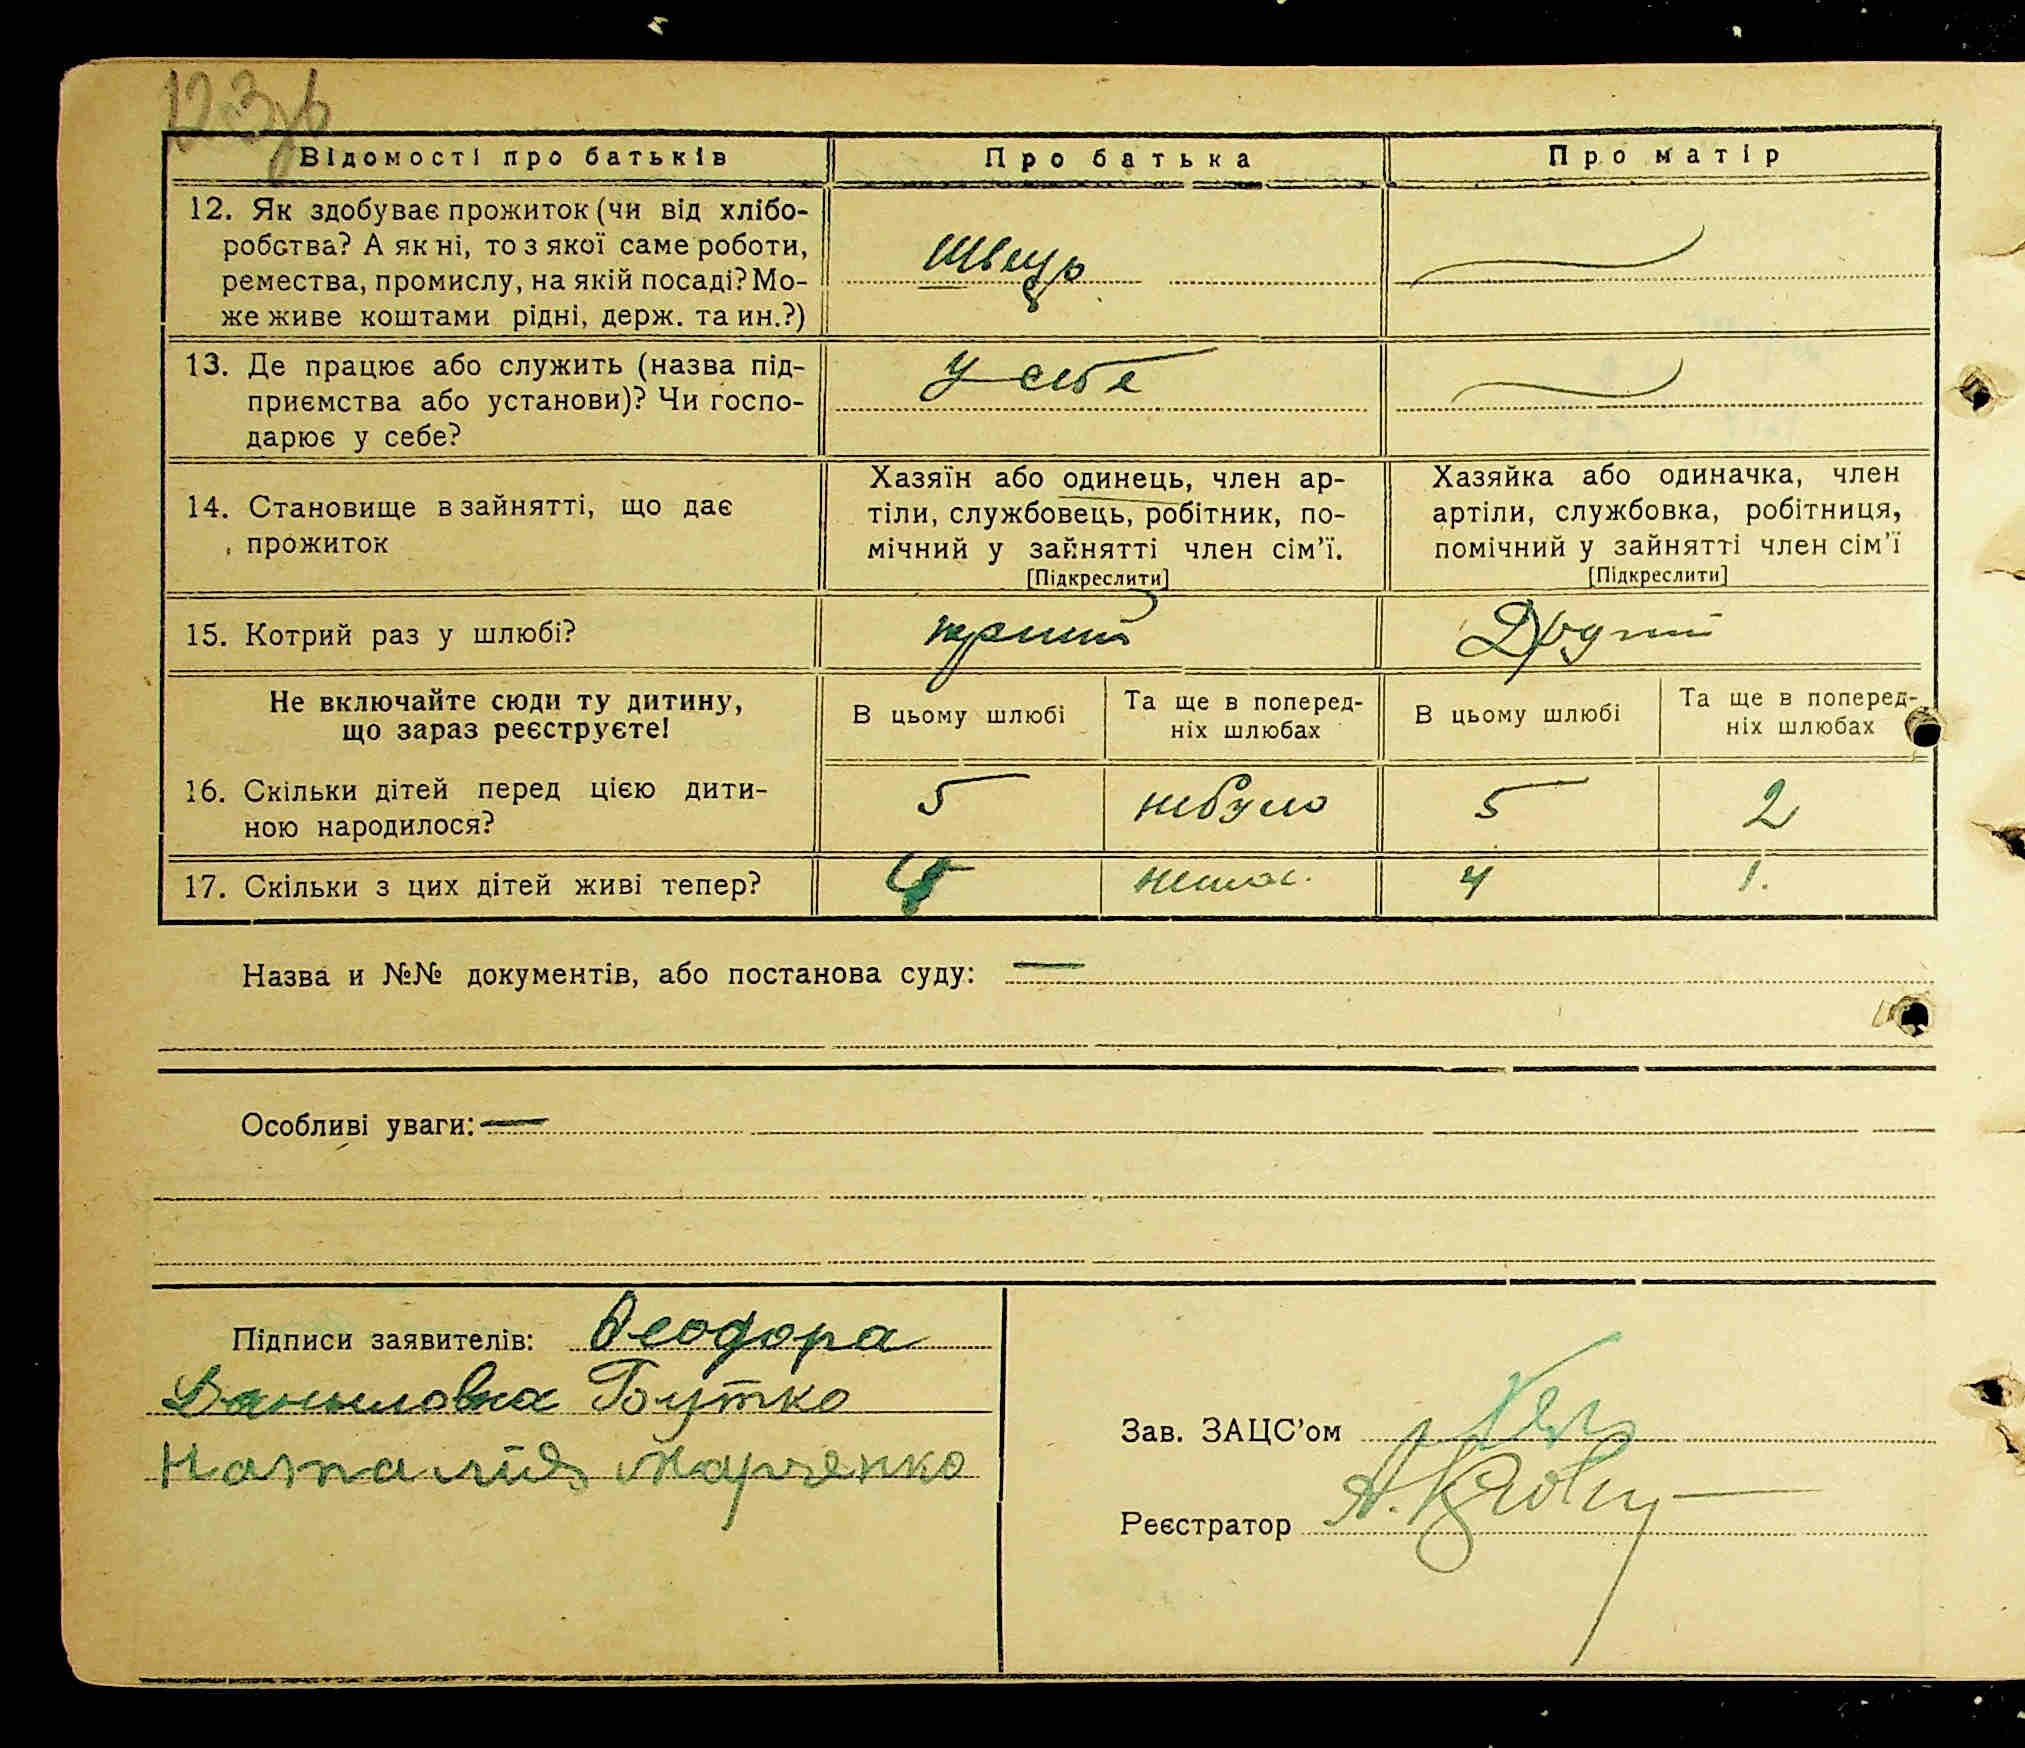 123
Відомості про батьків Про батька Про матір
12. Як здобуває прожиток (чи від хлібо-
робства? А як ні, то з якої саме роботи,
ремества, промислу, на якій посаді? Мо-
же живе коштами рідні, держ. та ин.?)
Швець
13. Де працює або служить (назва під-
приємства або установи)? Чи госпо-
дарює у себе?
У себе
14. Становище в зайнятті, що дає
прожиток
Хазяїн або одинець, член ар-
тіли, службовець, робітник, по-
мічний у зайнятті член сім’ї.
[Підкреслити]
Хазяйка або одиначка, член
артіли, службовка, робітниця,
помічний у зайнятті член сім’ї
[Підкреслити]
15. Котрий раз у шлюбі? Другий
Не включайте сюди ту дитину,
що зараз реєструєте!
В цьому шлюбі
Та ще в поперед-
ніх шлюбах
В цьому шлюбі
Та ще в поперед-
ніх шлюбах
16. Скільки дітей перед цією дити-
ною народилося?
5 небуло 5 2
17. Скільки з цих дітей живі тепер? 4 немає. 4 1.
Назва и №№ документів, або постанова суду: —
Особливі уваги: —
Підписи заявителів: Феодора
Даныловна Бутко
Наталия Марченко
Зав. ЗАЦС’ом
Реєстратор А.